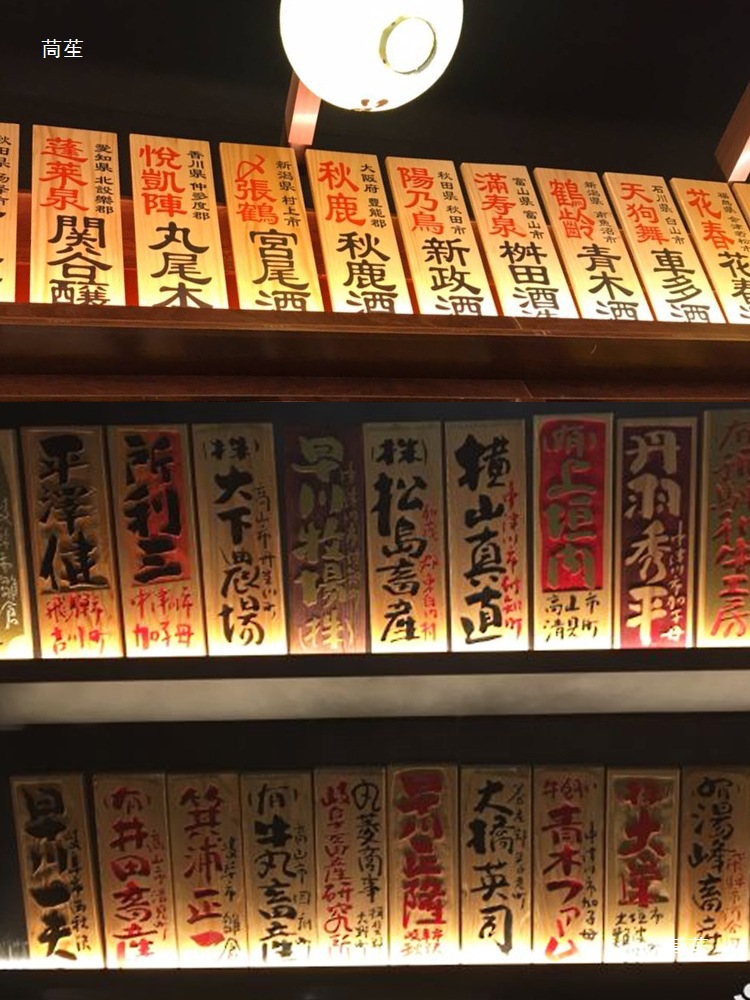 茼笙
蓬莱泉
愛知県 北設樂郡
関谷醸
悦凱陣
香川県 仲多度郡
丸尾本
〆張鶴
新潟県 村上市
宮尾酒
秋鹿
大阪府 豊能郡
秋鹿酒
陽乃鳥
秋田県 秋田市
新政酒
滿寿泉
富山県 富山市
桝田酒造
鶴齢
新潟県 南魚沼市
青木酒
天狗舞
石川県 白山市
車多酒
花春
平澤健
飛騨市
古川町
所利三
中津川市
加子母
(株)大下農場
高山市丹生川町
早川牧場(株)
(株)松島畜産
横山真直
中津川市付知町
(有)上垣内
高山市
清見町
丹羽秀平
中津川市加子母
早川一夫
(有)井田畜産
箕浦正一
(有)牛丸畜産
高山市国府町
丸菱商事
岐阜畜産研究所
早川正隆
大橋英司
青木ファーム
中津川市加子母
(有)湯峰畜産